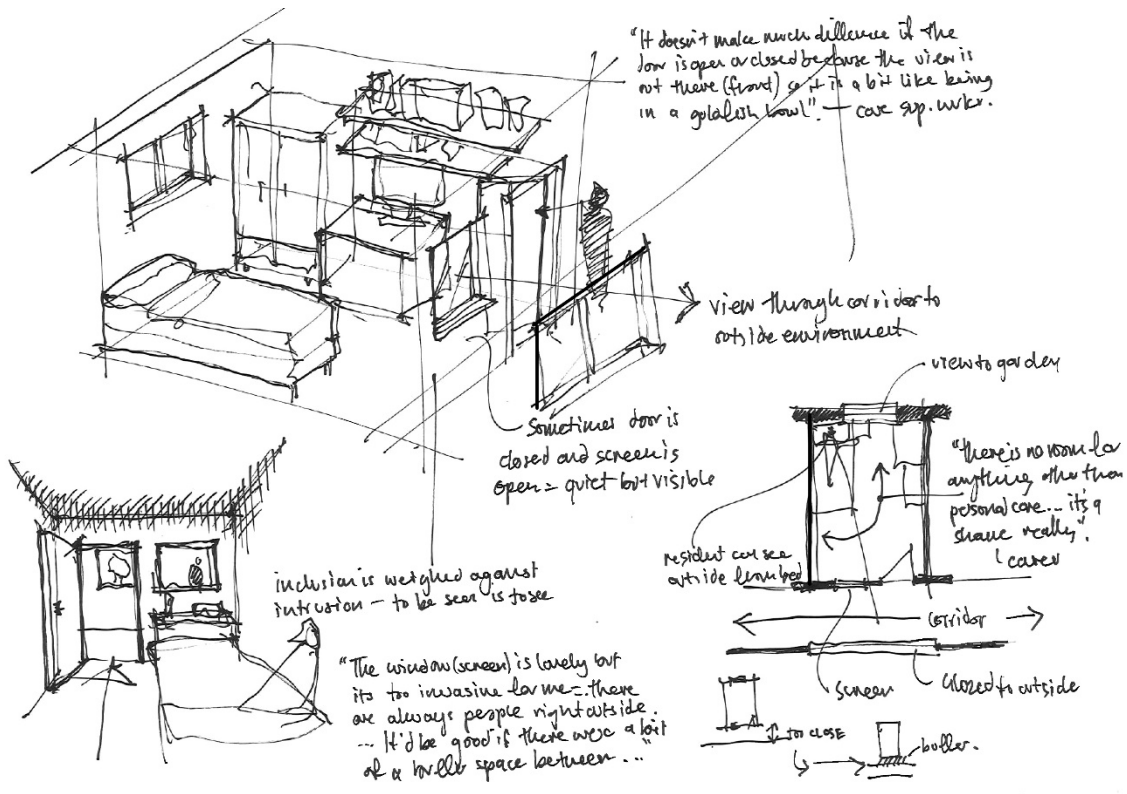 "It doesn't make much difference if the
door is open or closed because the view is
not there (front) so it is a bit like being
in a goldfish bowl". — care sup. wrkr.
view through corridor to
outside environment
view to garden
Sometimes door is
closed and screen is
open = quiet but visible
"There is no room for
anything other than
personal care... it's a
shame really".
carer
resident can see
outside from bed
corridor
screen
closed to outside
too close
buffer.
inclusion is weighed against
intrusion — to be seen is to see
"The window (screen) is lovely but
its too invasive for me = there
are always people right outside.
... It'd be good if there were a bit
of a buffer space between..."